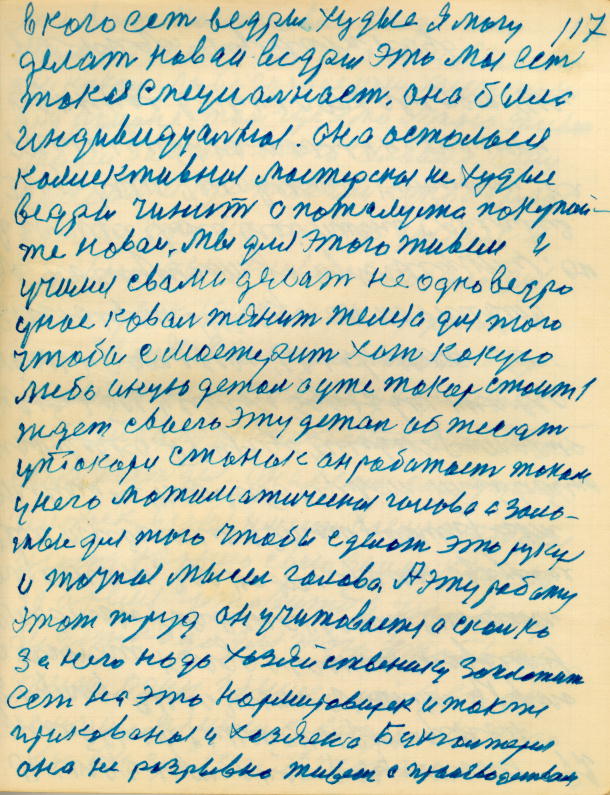 вкого сет ведры худые я могу 117
делат новаи ведры это мы сет
такая специалнаст. она была
индивидуалная. она осталься
колективная мастерская не худые
ведры чинит а пожалуста покупай-
те новаи. мы для этого живем и
учимя свами делат не одно ведро
для того
чтобы смастерит хот какую
либо иную детал а уже токар стоит
ждет своего эту детал обтесат
у токаря станок он работает током
у него матиматическая голова а золо-
тые для того чтобы сделат это руки
и точная мысел голова. А эту работу
этот труд он учитовается а сколко
за него надо хозяйственику заплатит
сет на это нормировщек и также
и хозяена Бухгалтерия
она не розрывно живет с производствам